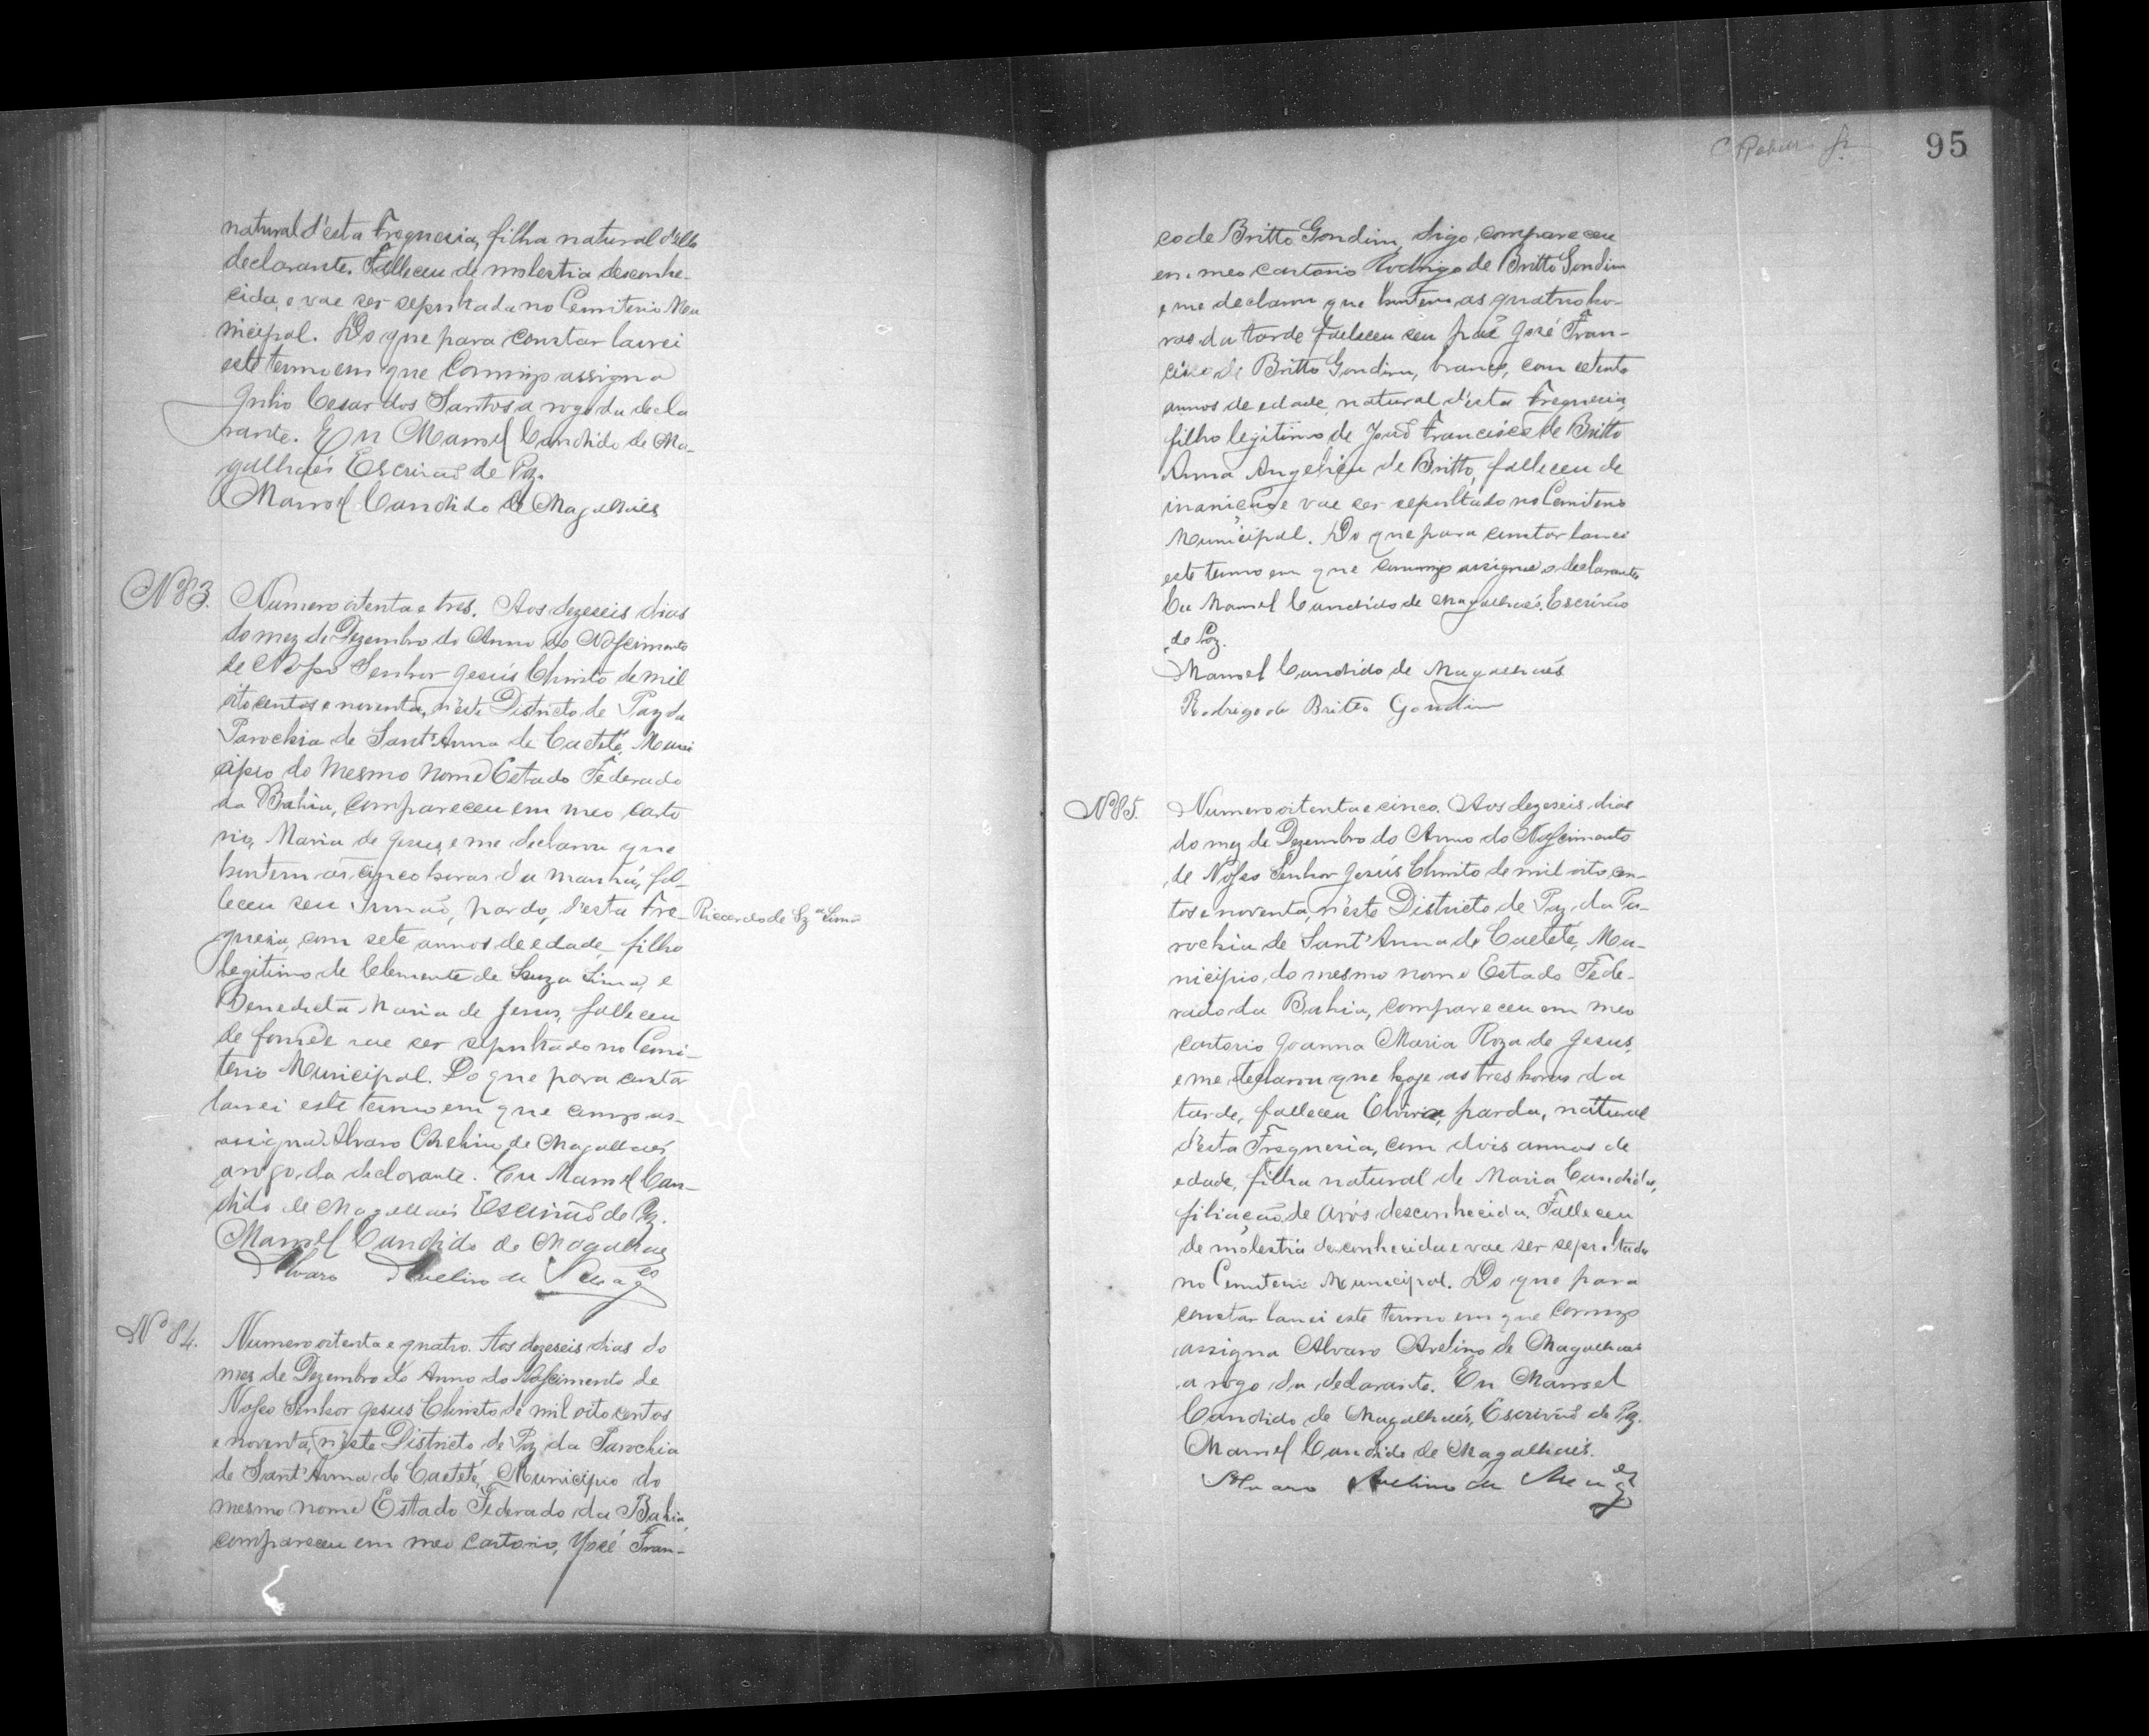 natural d'esta Freguesia, filha natural d'ella
declarante. Falleceu de molestia desconhe-
cida, e vae ser sepultada no Cemiterio Mu
nicipal. Do que para constar lavrei
este termo em que commigo assigna
Julio Cesar dos Santos a rogo da decla
rante. Eu Manoel Candido de Ma-
galhães Escrivaõ de Paz.
Manoel Candido de Magalhães
Nº 83.
Numero oitenta e tres. Aos dezeseis dias
do mez de Dezembro do Anno do Nascimento
de Nosso Senhor Jesús Christo de mil
oito centos e noventa, n'este Districto de Paz da
Parochia de Sant'Anna de Caeteté, Muni
cipio do mesmo nome Estado Federado
da Bahia, compareceu em meo carto
rio, Maria de Jesus, e me declarou que
hontem as cinco horas da manhã, fal-
leceu seu Irmaõ, pardo, d'esta Fre-
Riccardo de Sz.ª Lima
guesia, com sete annos de edade, filho
legitimo de Clemente de Souza Lima, e
Benedicta Maria de Jesus, falleceu
de fome e vae ser sepultado no Cemi-
terio Municipal. Do que para constar
lavrei este termo em que commigo as-
assigna Alvaro Avelino de Magalhães
a rogo da declarante. Eu Manoel Can-
dido de Magalhães Escrivaõ de Paz.
Manoel Candido de Magalhães
Alvaro Avelino de Magªes
Nº 84.
Numero oitenta e quatro. Aos dezeseis dias do
mez de Dezembro do Anno do Nascimento de
Nosso Senhor Jesus Christo de mil oito centos
e noventa, n'este Districto de Paz da Parochia
de Sant'Anna de Caeteté, Municipio do
mesmo nome Estado Federado da Bahia,
compareceu em meo cartorio, José Fran-
95
co de Britto Gondim, digo, compareceu
em meo cartorio Rodrigo de Britto Gondim
e me declarou que hontem as quatro ho-
ras da tarde falleceu seu pae José Fran-
cisco de Britto Gondim, branco, com setenta
annos de edade, natural d'esta Freguesia,
filho legitimo de Joaõ Francisco de Britto
Anna Angelica de Britto, falleceu de
inaniçaõ e vae ser sepultado no Cemiterio
Municipal. Do que para constar lavrei
este termo em que commigo assigna o declarante
Eu Manoel Candido de Magalhães, Escrivão
de Paz.
Manoel Candido de Magalhães
Rodrigo de Britto Gondim
Nº 85.
Numero oitenta e cinco. Aos dezeseis dias
do mez de Dezembro do Anno do Nascimento
de Nosso Senhor Jesús Christo de mil oito cen-
tos e noventa, n'este Districto de Paz da Pa-
rochia de Sant'Anna de Caeteté, Mu-
nicipio do mesmo nome Estado Fede-
rado da Bahia, compareceu em meo
cartorio Joanna Maria Roza de Jesus,
e me declarou que hoje as tres horas da
tarde, falleceu Elvira, parda, natural
d'esta Freguesia, com dois annos de
edade, filha natural de Maria Candida,
filiaçaõ de avós desconhecida. Falleceu
de molestia desconhecida e vae ser sepultada
no Cemiterio Municipal. Do que para
constar lavrei este termo em que commigo
assigna Alvaro Avelino de Magalhães
a rogo da declarante. Eu Manoel
Candido de Magalhães, Escrivaõ de Paz.
Manoel Candido de Magalhães.
Alvaro Avelino de Magªes